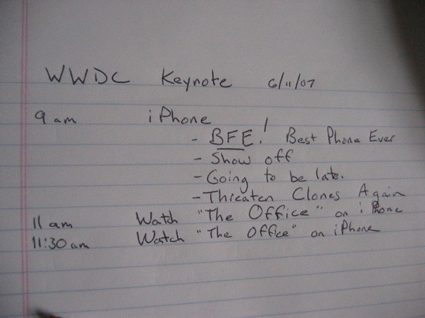 WWDC Keynote 6/11/07
9 am iPhone !
- BFE! Best Phone Ever
- Show off
- Going to be late.
- Threaten Clones Again
11 am Watch "The Office" on iPhone
11:30 am Watch "The Office" on iPhone